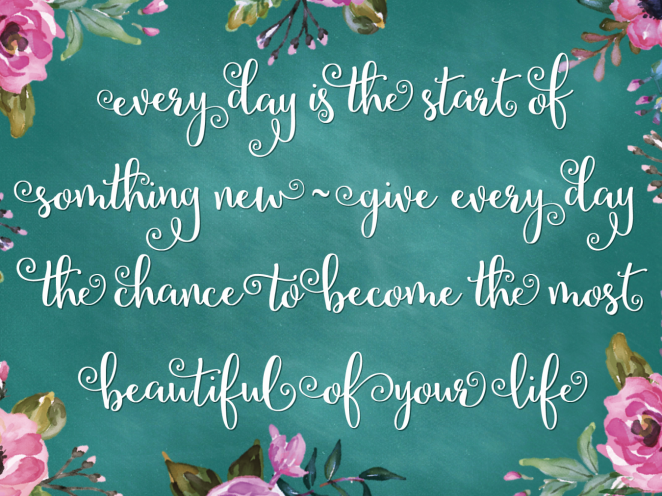 every day is the start of
somthing new ~ give every day
the chance to become the most
beautiful of your life